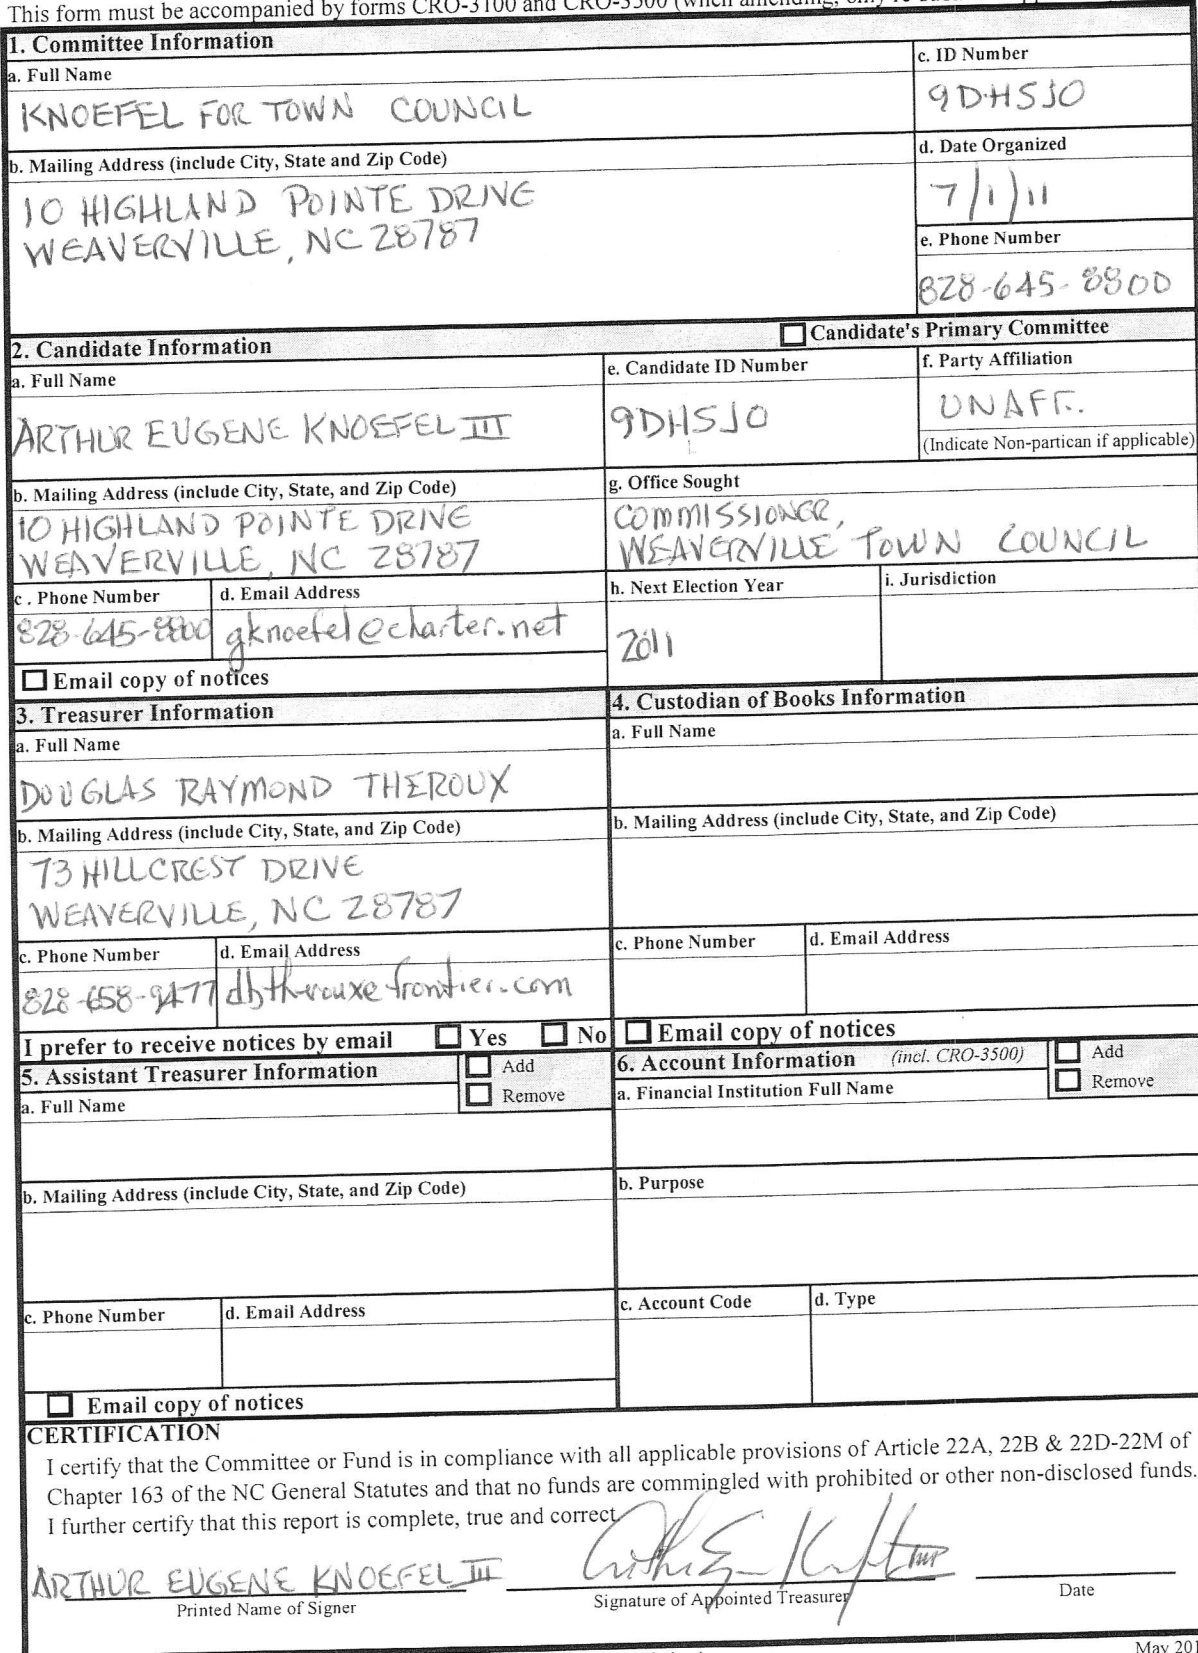 This form must be accompanied by forms CRO-3100 and CRO-3500 (when amending, only
1. Committee Information
a. Full Name
KNOEFEL FOR TOWN COUNCIL
c. ID Number
9DHSJ0
b. Mailing Address (include City, State and Zip Code)
10 HIGHLAND POINTE DRIVE
WEAVERVILLE, NC 28787
d. Date Organized
7/1/11
e. Phone Number
828-645-8800
2. Candidate Information
Candidate's Primary Committee
a. Full Name
ARTHUR EUGENE KNOEFEL III
e. Candidate ID Number
9DHSJ0
f. Party Affiliation
UNAFF.
(Indicate Non-partican if applicable)
b. Mailing Address (include City, State, and Zip Code)
10 HIGHLAND POINTE DRIVE
WEAVERVILLE, NC 28787
g. Office Sought
COMMISSIONER,
WEAVERVILLE TOWN COUNCIL
c. Phone Number
828-645-8800
d. Email Address
gknoefel@charter.net
h. Next Election Year
2011
i. Jurisdiction
Email copy of notices
3. Treasurer Information
a. Full Name
DOUGLAS RAYMOND THEROUX
b. Mailing Address (include City, State, and Zip Code)
73 HILLCREST DRIVE
WEAVERVILLE, NC 28787
c. Phone Number
828-658-9477
d. Email Address
dbtheroux@frontier.com
I prefer to receive notices by email Yes No
4. Custodian of Books Information
a. Full Name
b. Mailing Address (include City, State, and Zip Code)
c. Phone Number
d. Email Address
Email copy of notices
5. Assistant Treasurer Information
Add
Remove
a. Full Name
b. Mailing Address (include City, State, and Zip Code)
c. Phone Number
d. Email Address
Email copy of notices
6. Account Information (incl. CRO-3500)
Add
Remove
a. Financial Institution Full Name
b. Purpose
c. Account Code
d. Type
CERTIFICATION
I certify that the Committee or Fund is in compliance with all applicable provisions of Article 22A, 22B & 22D-22M of
Chapter 163 of the NC General Statutes and that no funds are commingled with prohibited or other non-disclosed funds.
I further certify that this report is complete, true and correct
ARTHUR EUGENE KNOEFEL III
Printed Name of Signer
Signature of Appointed Treasurer
Date
May 201